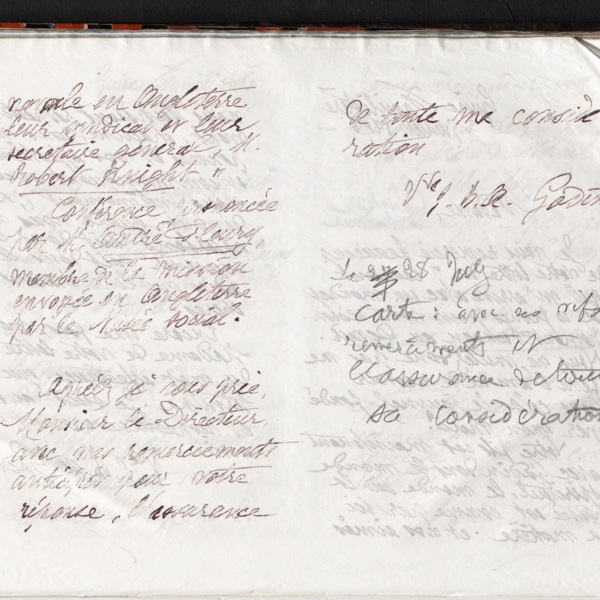 navale en Angleterre,
leur syndicat et leur
secrétaire général, M.
Robert Knight"
Conférence prononcée
par M. André Fleury,
membre de la mission
envoyée en Angleterre
par le Musée social.
Agréez je vous prie,
Monsieur le Directeur,
avec mes remerciements
anticipés pour votre
réponse, l'assurance
de toute ma considé
ration
Vve J. B. A. Godin
Le 28 July
Carte: avec ses vifs
remerciements et
l'assurance de toute
sa considération